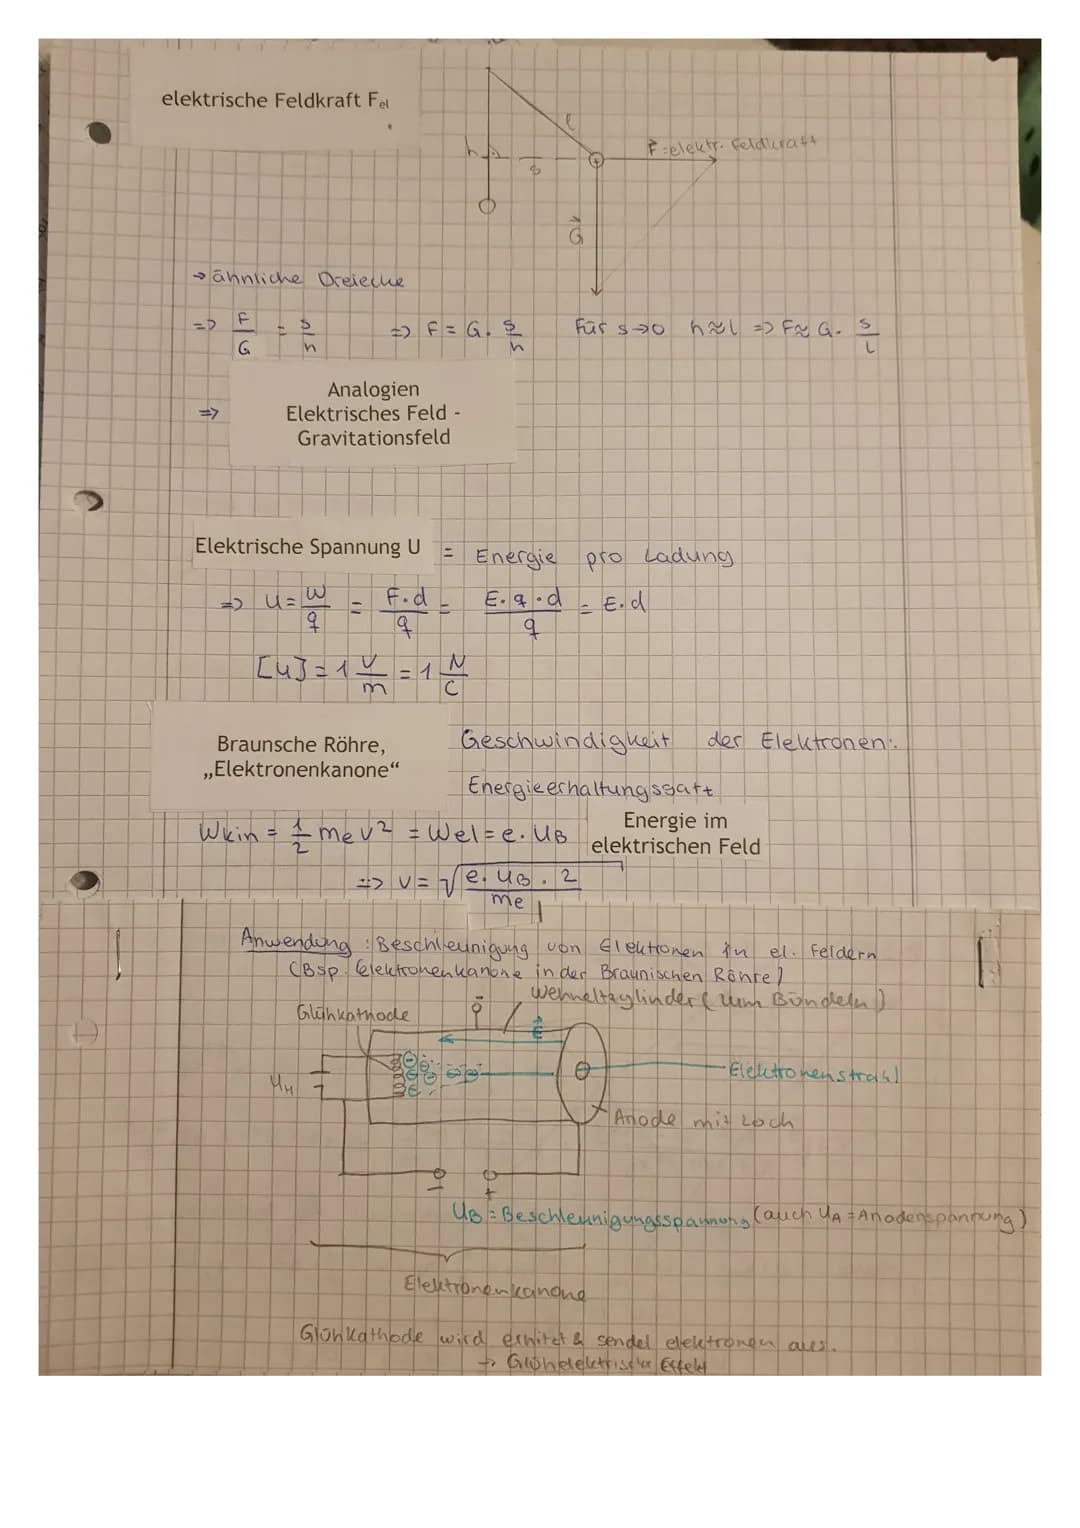 elektrische Feldkraft Fel
l
h
s
F⃗ = elektr. Feldkraft
G⃗
→ ähnliche Dreiecke
=> F/G = s/h => F = G · s/h Für s→0 h≈l => F≈ G · s/l
=> Analogien
Elektrisches Feld -
Gravitationsfeld
Elektrische Spannung U = Energie pro Ladung
=> U = W/q = F·d/q = E·q·d/q = E·d
[U] = 1 V/m = 1 N/C
Braunsche Röhre,
„Elektronenkanone“
Geschwindigkeit der Elektronen:
Energieerhaltungssatt
Energie im
elektrischen Feld
Wkin = 1/2 me v² = Wel = e · UB
=> v = √(e · UB · 2/me)
Anwendung : Beschleunigung von Elektronen in el. Feldern
(Bsp. Elektronenkanone in der Braunischen Röhre)
Wehneltzylinder (zum Bündeln)
Glühkathode
E⃗
UH
Elektronenstrahl
Anode mit Loch
− +
UB = Beschleunigungsspannung (auch UA = Anodenspannung)
Elektronenkanone
Glühkathode wird erhitzt & sendet elektronen aus.
→ Glühelektrischer Effekt